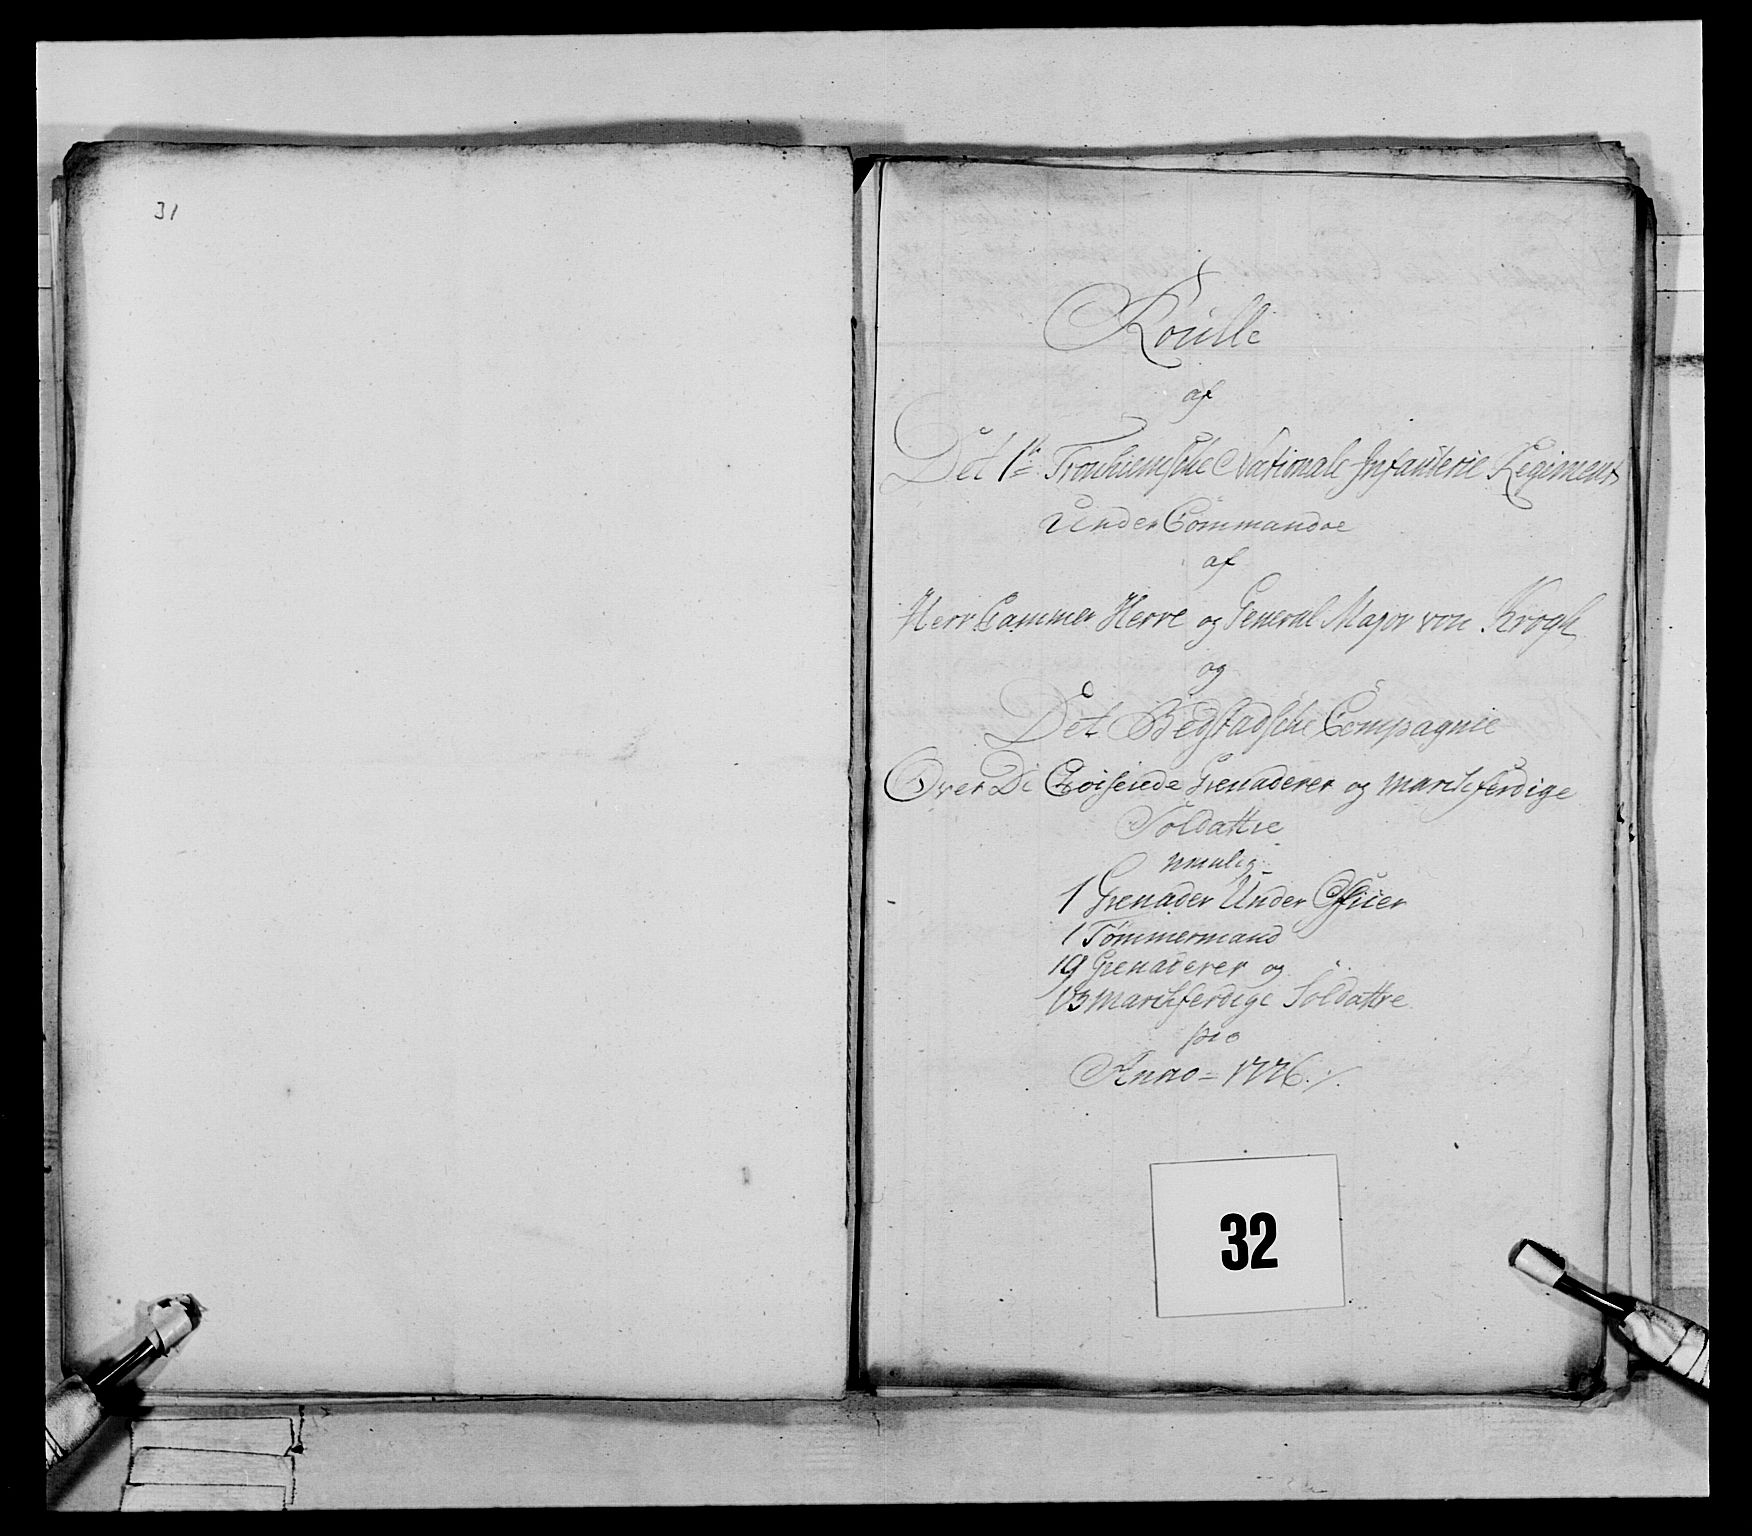 31
Roulle
af
Det 1te Tronhiemsche Nationale Infanterie Regiment
Under Commando
af
Herr Cammer Herre og General Major von Krogh
og
Det Bedstadsche Compagnie
Over De Exviserede Grenaderer og marschferdige
Soldattre
nmulig
1 Grenader Under Officer
1 Tømmermand
19 Grenaderer og
103 Marschferdige Soldattre
pro
Anno = 1776 ./.
32